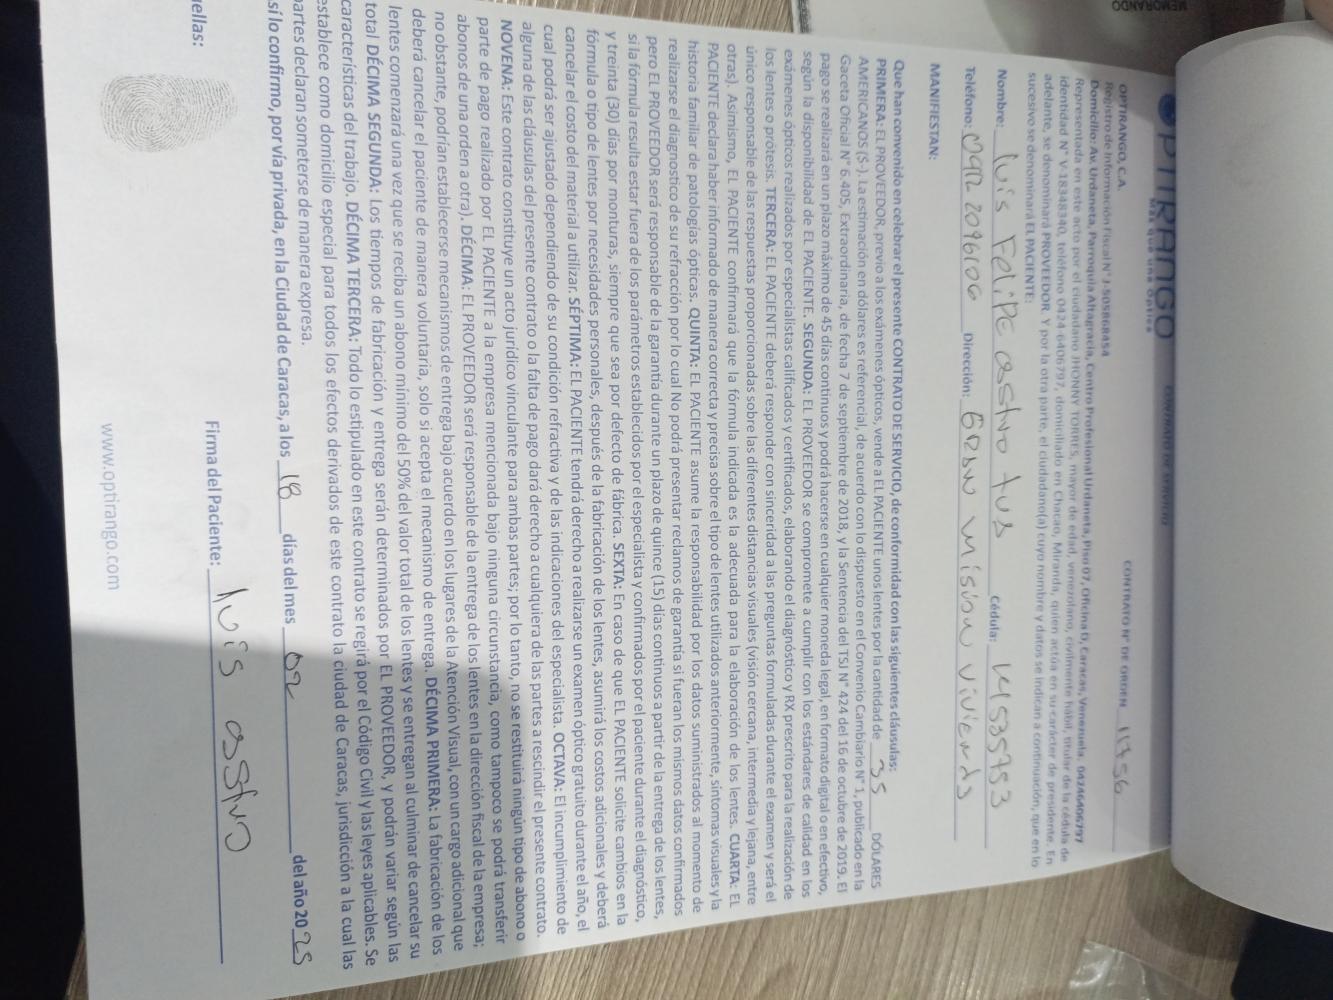 MEMORANDO
OPTIRANGO
Más que una Óptica
CONTRATO DE SERVICIO
OPTIRANGO, C.A. CONTRATO N° DE ORDEN 11756
Registro de Información Fiscal N° J-505868454
Domicilio: Av. Urdaneta, Parroquia Altagracia, Centro Profesional Urdaneta, Piso 07, Oficina D, Caracas, Venezuela. 04246406797
Representada en este acto por el ciudadano JHONNY TORRES, mayor de edad, venezolano, civilmente hábil, titular de la cédula de
identidad N° V-18348340, teléfono 0424-6406797, domiciliado en Chacao, Miranda, quien actúa en su carácter de presidente. En
adelante, se denominará PROVEEDOR. Y por la otra parte, el ciudadano(a) cuyo nombre y datos se indican a continuación, que en lo
sucesivo se denominará EL PACIENTE:
Nombre: luis Felipe castro Cédula: 14535753
Teléfono: 0412 2096106 Dirección: GRAN Misión vivienda
MANIFIESTAN:
Que han convenido en celebrar el presente CONTRATO DE SERVICIO, de conformidad con las siguientes cláusulas:
PRIMERA: EL PROVEEDOR, previo a los exámenes ópticos, vende a EL PACIENTE unos lentes por la cantidad de 35 DÓLARES
AMERICANOS ($-). La estimación en dólares es referencial, de acuerdo con lo dispuesto en el Convenio Cambiario N° 1, publicado en la
Gaceta Oficial N° 6.405, Extraordinaria, de fecha 7 de septiembre de 2018, y la Sentencia del TSJ N° 424 del 16 de octubre de 2019. El
pago se realizará en un plazo máximo de 45 días continuos y podrá hacerse en cualquier moneda legal, en formato digital o en efectivo,
según la disponibilidad de EL PACIENTE. SEGUNDA: EL PROVEEDOR se compromete a cumplir con los estándares de calidad en los
exámenes ópticos realizados por especialistas calificados y certificados, elaborando el diagnóstico y RX prescrito para la realización de
los lentes o prótesis. TERCERA: EL PACIENTE deberá responder con sinceridad a las preguntas formuladas durante el examen y será el
único responsable de las respuestas proporcionadas sobre las diferentes distancias visuales (visión cercana, intermedia y lejana, entre
otras). Asimismo, EL PACIENTE confirmará que la fórmula indicada es la adecuada para la elaboración de los lentes. CUARTA: EL
PACIENTE declara haber informado de manera correcta y precisa sobre el tipo de lentes utilizados anteriormente, síntomas visuales y la
historia familiar de patologías ópticas. QUINTA: EL PACIENTE asume la responsabilidad por los datos suministrados al momento de
realizarse el diagnostico de su refracción por lo cual No podrá presentar reclamos de garantía si fueran los mismos datos confirmados
pero EL PROVEEDOR será responsable de la garantía durante un plazo de quince (15) días continuos a partir de la entrega de los lentes,
si la fórmula resulta estar fuera de los parámetros establecidos por el especialista y confirmados por el paciente durante el diagnóstico,
y treinta (30) días por monturas, siempre que sea por defecto de fábrica. SEXTA: En caso de que EL PACIENTE solicite cambios en la
fórmula o tipo de lentes por necesidades personales, después de la fabricación de los lentes, asumirá los costos adicionales y deberá
cancelar el costo del material a utilizar. SÉPTIMA: EL PACIENTE tendrá derecho a realizarse un examen óptico gratuito durante el año, el
cual podrá ser ajustado dependiendo de su condición refractiva y de las indicaciones del especialista. OCTAVA: El incumplimiento de
alguna de las cláusulas del presente contrato o la falta de pago dará derecho a cualquiera de las partes a rescindir el presente contrato.
NOVENA: Este contrato constituye un acto jurídico vinculante para ambas partes; por lo tanto, no se restituirá ningún tipo de abono o
parte de pago realizado por EL PACIENTE a la empresa mencionada bajo ninguna circunstancia, como tampoco se podrá transferir
abonos de una orden a otra). DÉCIMA: EL PROVEEDOR será responsable de la entrega de los lentes en la dirección fiscal de la empresa;
no obstante, podrían establecerse mecanismos de entrega bajo acuerdo en los lugares de la Atención Visual, con un cargo adicional que
deberá cancelar el paciente de manera voluntaria, solo si acepta el mecanismo de entrega. DÉCIMA PRIMERA: La fabricación de los
lentes comenzará una vez que se reciba un abono mínimo del 50% del valor total de los lentes y se entregan al culminar de cancelar su
total DÉCIMA SEGUNDA: Los tiempos de fabricación y entrega serán determinados por EL PROVEEDOR, y podrán variar según las
características del trabajo. DÉCIMA TERCERA: Todo lo estipulado en este contrato se regirá por el Código Civil y las leyes aplicables. Se
establece como domicilio especial para todos los efectos derivados de este contrato la ciudad de Caracas, jurisdicción a la cual las
partes declaran someterse de manera expresa.
sí lo confirmo, por vía privada, en la Ciudad de Caracas, a los 18 días del mes 02 del año 2025
uellas:
Firma del Paciente: luis castro
www.optirango.com